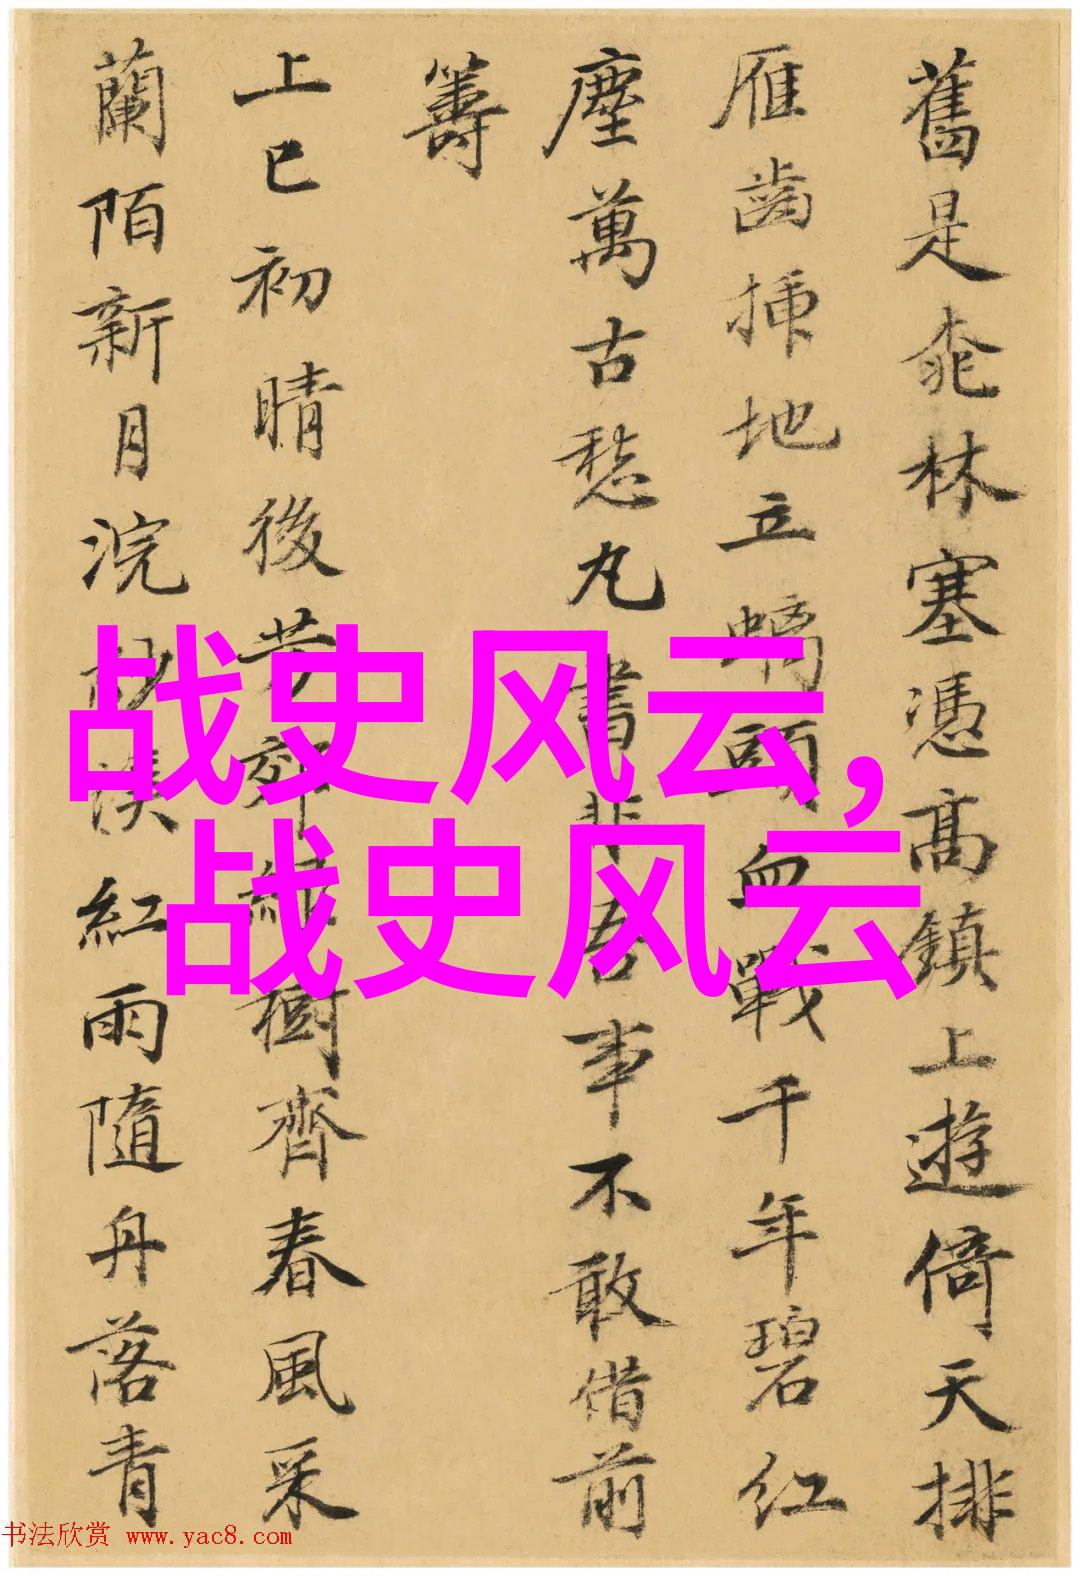 舊是桃林塞憑高鎮上遊倚天排
雁齒插地立螭頭血戰千年碧紅
塵萬古愁丸書非吾事不敢借前
籌
上巳初晴後芳郊綠樹齊春風采
蘭陌新月浣紗溪紅雨隨舟落青
战史风云,
战史风云
书法欣赏 www.yac8.com